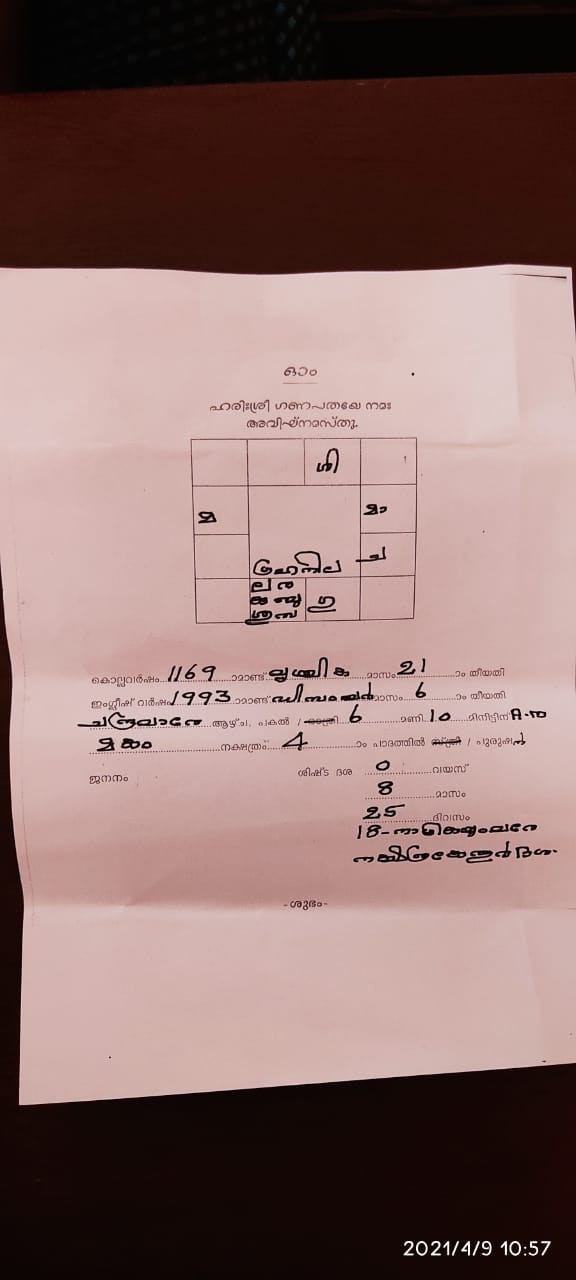 ഓം
ഹരിഃശ്രീ ഗണപതയേ നമഃ
അവിഘ്നമസ്തു.
ശി
മ
മാ
ഗ്രഹനില
ച
ല ര
ഗു
കൊല്ലവർഷം 1169 ാമാണ്ട് വൃശ്ചിക മാസം 21 ാം തീയതി
ഇംഗ്ലീഷ് വർഷം 1993 ാമാണ്ട് ഡിസംബർ മാസം 6 ാം തീയതി
ആഴ്ച, പകൽ / രാത്രി 6 മണി 10 മിനിട്ടിന് A-m
മകം നക്ഷത്രം 4 ാം പാദത്തിൽ സ്ത്രീ / പുരുഷൻ
ജനനം ശിഷ്ട ദശ 0 വയസ്
8 മാസം
25 ദിവസം
18-നാഴികയും
-ശുഭം-
2021/4/9 10:57